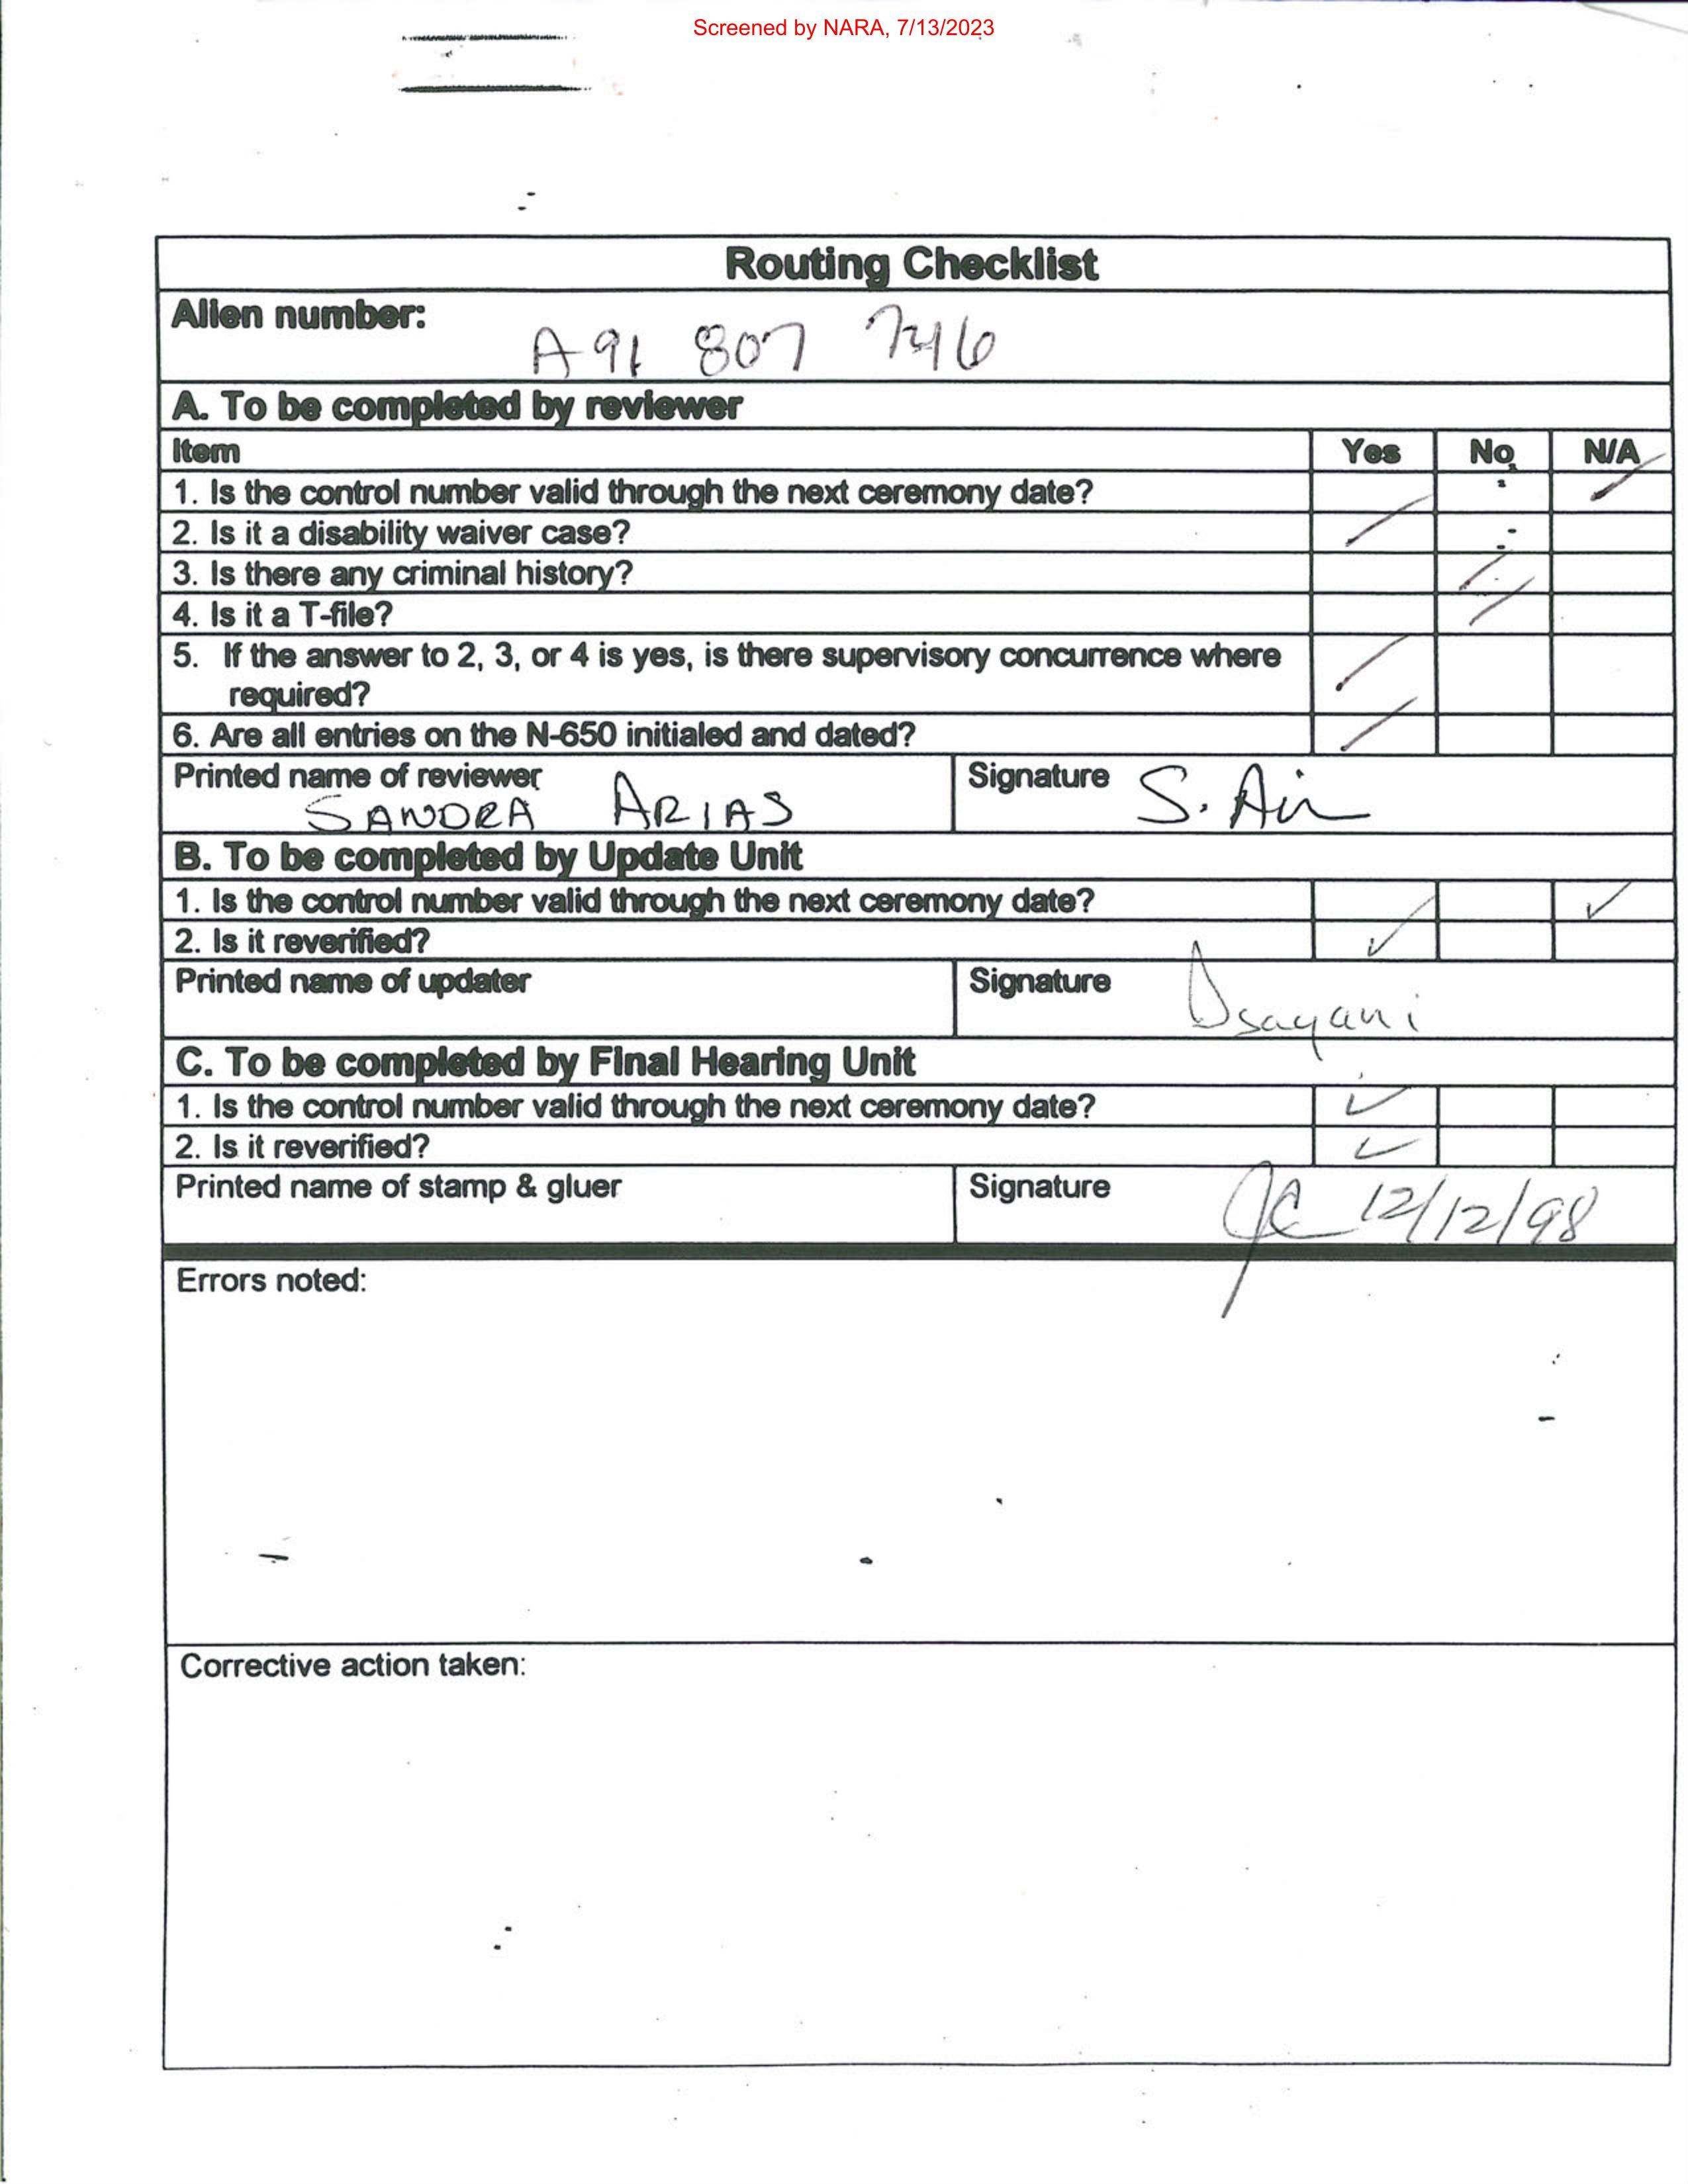 Screened by NARA, 7/13/2023
Routing Checklist
Alien number:
A 91 807 746
A. To be completed by reviewer
Item Yes No N/A
1. Is the control number valid through the next ceremony date?
2. Is it a disability waiver case?
3. Is there any criminal history?
4. Is it a T-file?
5. If the answer to 2, 3, or 4 is yes, is there supervisory concurrence where
required?
6. Are all entries on the N-650 initialed and dated?
Printed name of reviewer Signature
SANDRA ARIAS S.
B. To be completed by Update Unit
1. Is the control number valid through the next ceremony date?
2. Is it reverified?
Printed name of updater Signature
C. To be completed by Final Hearing Unit
1. Is the control number valid through the next ceremony date?
2. Is it reverified?
Printed name of stamp & gluer Signature
12/12/98
Errors noted:
Corrective action taken: